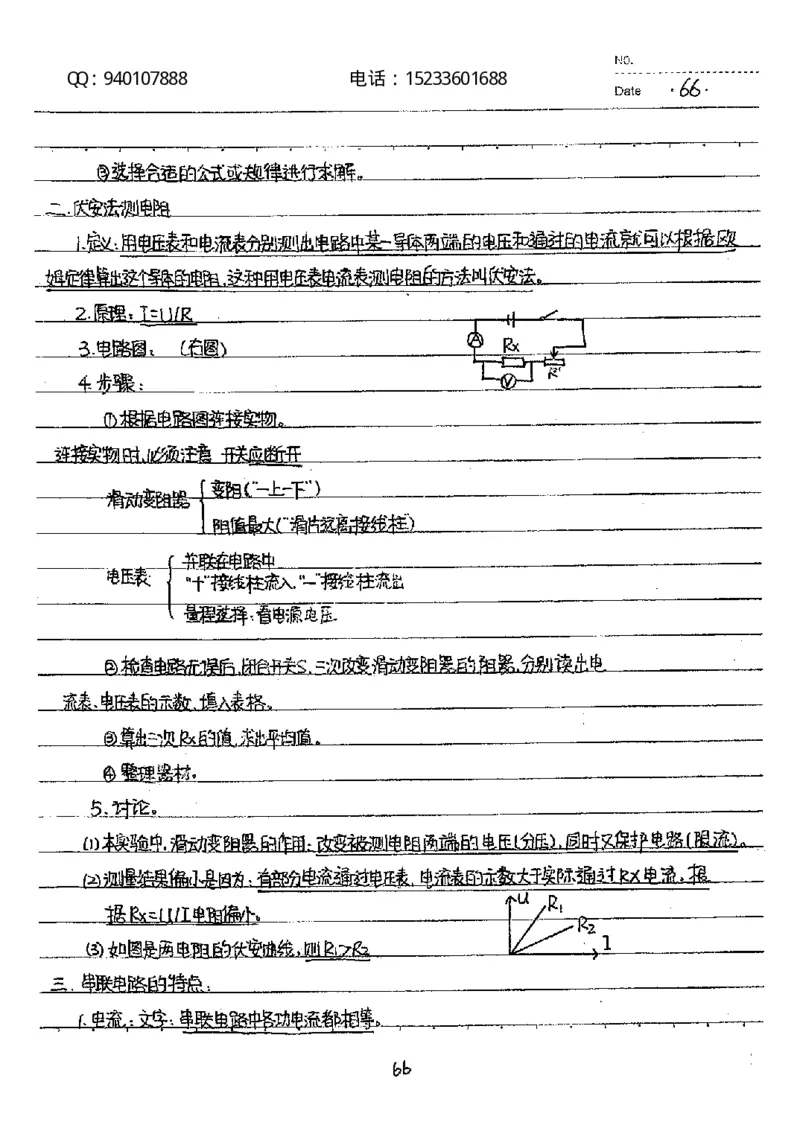 NO.
QQ：940107888 电话：15233601688
Date ·66·
③选择合适的公式或规律进行求解。
二.伏安法测电阻
1.定义:用电压表和电流表分别测出电路中某一导体两端的电压和通过的电流就可以根据欧
姆定律算出这个导体的电阻,这种用电压表电流表测电阻的方法叫伏安法。
2.原理:I=U/R
3.电路图: (右图)
A Rx R' V
4.步骤:
①根据电路图连接实物。
连接实物时,必须注意 开关应断开
滑动变阻器 变阻("一上一下")
阻值最大("滑片远离接线柱")
电压表: 并联在电路中
"+"接线柱流入,"-"接线柱流出
量程选择:看电源电压
②检查电路无误后,闭合开关S,三次改变滑动变阻器的阻器,分别读出电
流表、电压表的示数,填入表格。
③算出三次Rx的值,求出平均值。
④整理器材。
5.讨论。
(1)本实验中,滑动变阻器的作用:改变被测电阻两端的电压(分压),同时又保护电路(限流)。
(2)测量结果偏小是因为:有部分电流通过电压表,电流表的示数大于实际通过RX电流。根
据Rx=U/I电阻偏小。
U R1 R2 I
(3)如图是两电阻的伏安曲线,则R1>R2
三.串联电路的特点:
1.电流:文字:串联电路中各功电流都相等。
66